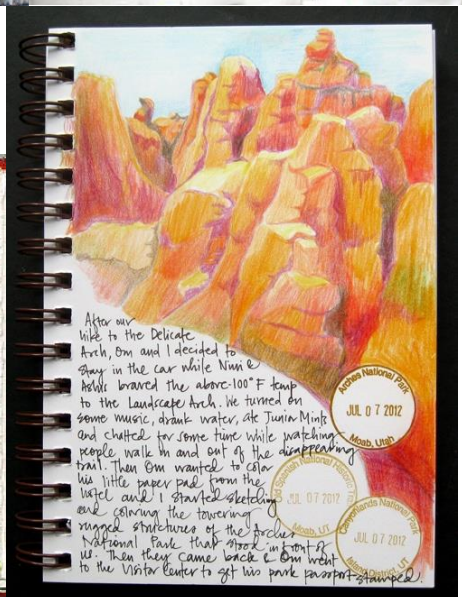 After our
hike to the Delicate
Arch, Om and I decided to
stay in the car while Nini &
Ashu braved the above-100°F temp
to the Landscape Arch. We turned on
some music, drank water, ate Junior Mints
and chatted for some time while watching
people walk in and out of the disappearing
trail. Then Om wanted to color
his little paper pad from the
hotel and I started sketching
and coloring the towering
rugged structures of the Arches
National Park that stood in front of
us. Then they came back & Om went
to the Visitor Center to get his park passport stamped.
Arches National Park
JUL 07 2012
Moab, Utah
Old Spanish National Historic Trail
JUL 07 2012
Moab, UT
Canyonlands National Park
JUL 07 2012
Island District, UT